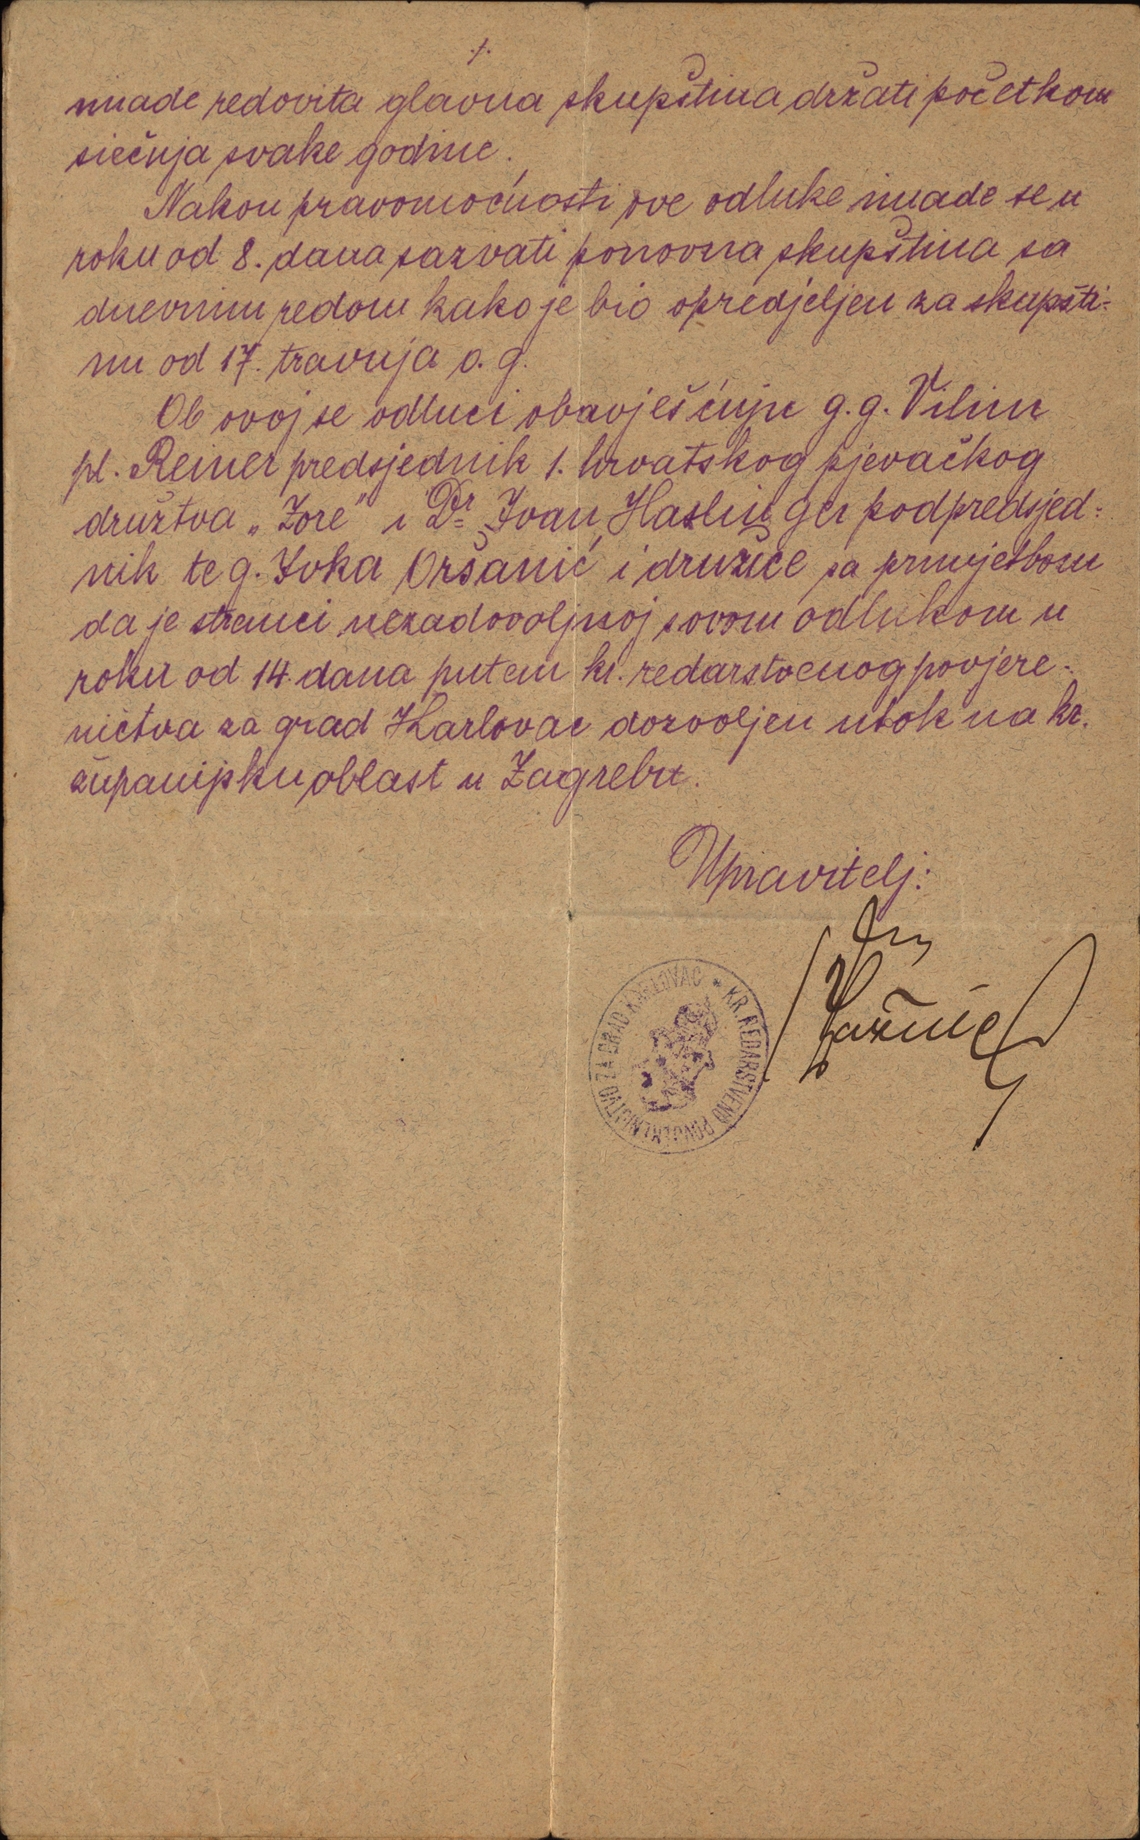 ./.
imade redovita glavna skupština držati početkom
siečnja svake godine.
Nakon pravomoćnosti ove odluke imade se u
roku od 8. dana sazvati ponovna skupština sa
dnevnim redom kako je bio opredjeljen za skupšti-
nu od 17. travnja o. g.
Ob ovoj se odluci obavješćuju g.g. Vilim
pl. Reiner predsjednik 1. hrvatskog pjevačkog
družtva „Zore" i Dr. Ivan Haslinger podpredsjed-
nik te g. Ivka Oršanić i družice sa primjetbom
da je stranci nezadovoljnoj s ovom odlukom u
roku od 14 dana putem kr. redarstvenog povjere-
ničtva za grad Karlovac dozvoljen utok na kr.
županijsku oblast u Zagrebu.
Upravitelj:
KR. REDARSTVENO POVJERENIČTVO ZA GRAD KARLOVAC